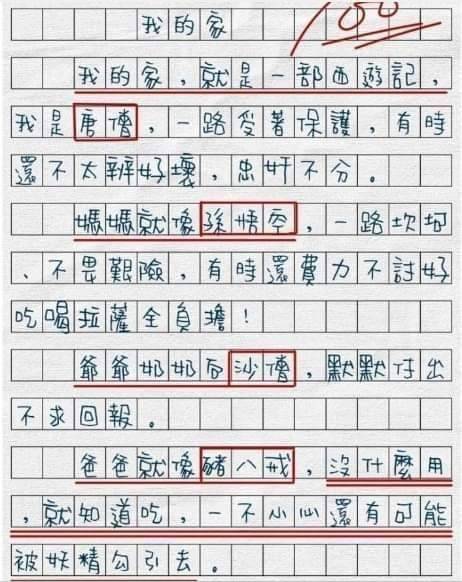 我的家
100
我的家,就是一部西遊記,
我是唐僧,一路受著保護,有時
還不太辨好壞,忠奸不分。
媽媽就像孫悟空,一路坎坷
、不畏艱險,有時還費力不討好
吃喝拉薩全負擔!
爺爺奶奶台沙僧,默默付出
不求回報。
爸爸就像豬八戒,沒什麼用
,就知道吃,一不小心還有可能
被妖精勾引去。